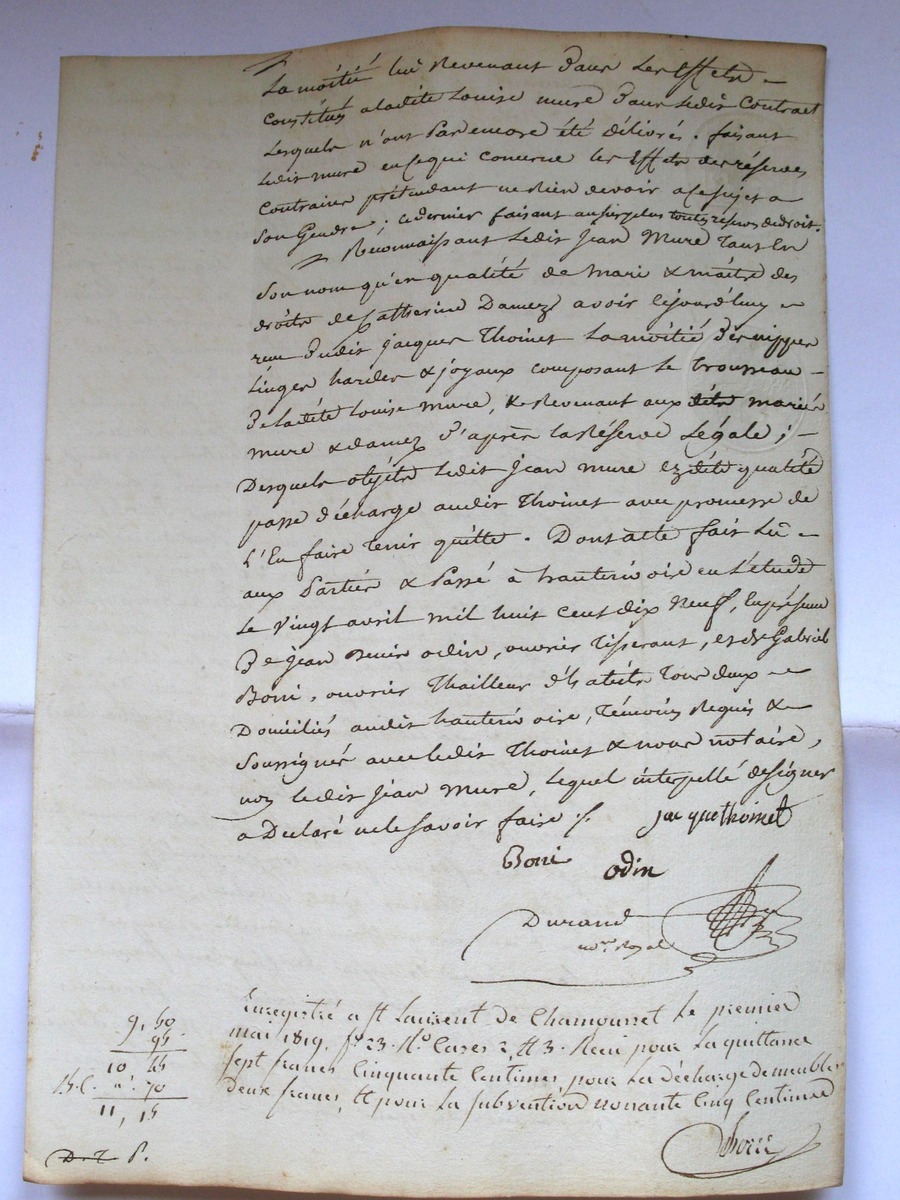 La moitié lui Revenant dans Les Effets
Constitués a ladite Louise mure dans Ledit Contract
Lesquels n'ont Pas encore été délivrés. faisant
Ledit mure en Ce qui concerne les Effets des réserves
Contraires prétendant ne Rien devoir a Ce Sujet a
Son Gendre; Ce dernier faisant au surplus toutes reserves de droit.
Reconnaissant Ledit Jean Mure Tant En
Son nom qu'en qualité de mari & maitre des
droits de Catherine Damez avoir Cejourd'huy
reçu dudit Jacques Thoinet La moitié des nippes
Linges hardes & joyaux composant Le trousseau
de ladite Louise mure, & Revenant aux dits mariés
mure & damez d'après la Réserve Légale;
Desquels objets Ledit Jean mure ez dite qualité
passe décharge audit Thoinet avec promesse de
L'En faire Tenir quitte. Dont acte fait Lû
aux Parties & Passé à hauterivoire en L'étude
Le Vingt avril mil huit cent dix Neuf, En présence
De Jean Benir odin, ouvrier Tisserant, et de Gabriel
Borri, ouvrier Thailleur d'habits Tous deux
Domiciliés audit hauterivoire, Témoins Requis &
Soussignés avec ledit Thoinet & nous notaire,
non ledit Jean Mure, Lequel interpellé de signer
a Declaré ne le savoir faire /.
jacque thoinet
Borri odin
Durand
nore. Royal
Enregistré a St Laurent de Chamousset Le premier
mai 1819, fo 23. Ro. Cases 2, et 3. Recu pour La quittance
Sept francs Cinquante Centimes, pour La décharge de meubles
deux francs, et pour La subvention nonante Cinq Centimes
9, 50
95
10, 45
70
11, 15
D. T P.